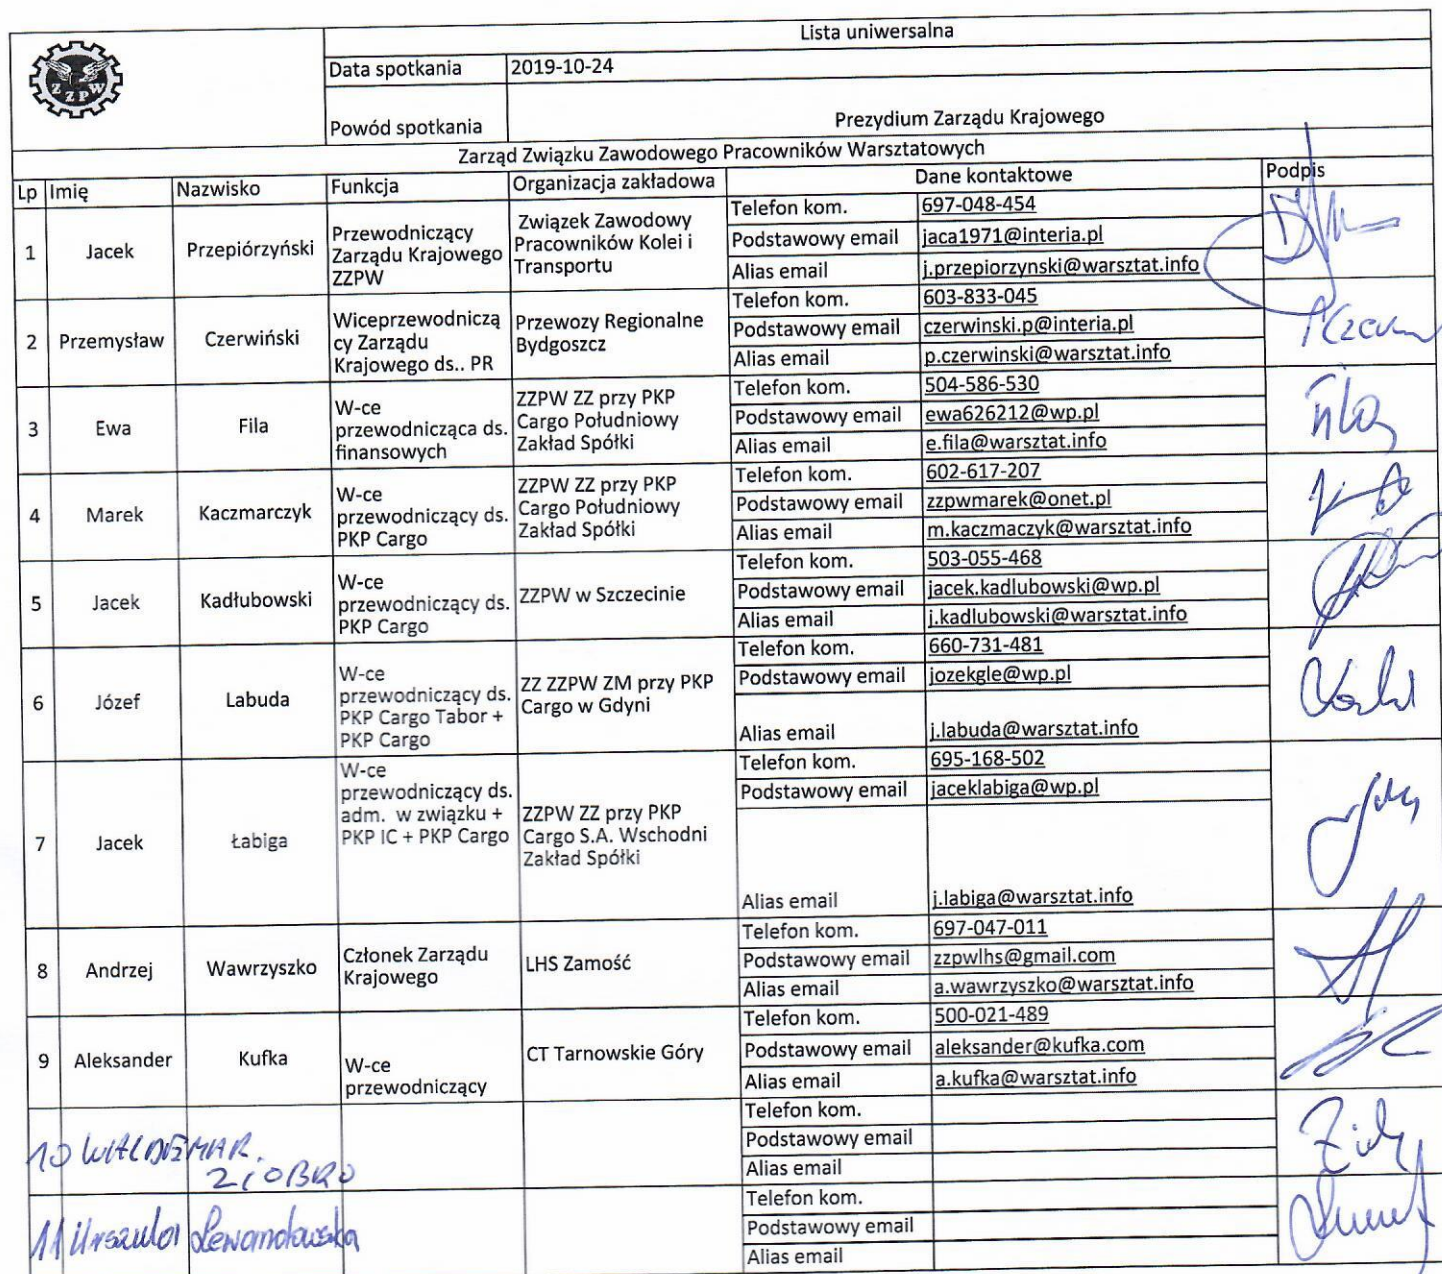 Lista uniwersalna
ZZPW
Data spotkania 2019-10-24
Powód spotkania Prezydium Zarządu Krajowego
Zarząd Związku Zawodowego Pracowników Warsztatowych
Lp Imię Nazwisko Funkcja Organizacja zakładowa Dane kontaktowe Podpis
1 Jacek Przepiórzyński
Przewodniczący
Zarządu Krajowego
ZZPW
Związek Zawodowy
Pracowników Kolei i
Transportu
Telefon kom. 697-048-454
Podstawowy email jaca1971@interia.pl
Alias email j.przepiorzynski@warsztat.info
2 Przemysław Czerwiński
Wiceprzewodniczą
cy Zarządu
Krajowego ds.. PR
Przewozy Regionalne
Bydgoszcz
Telefon kom. 603-833-045
Podstawowy email czerwinski.p@interia.pl
Alias email p.czerwinski@warsztat.info
3 Ewa Fila
W-ce
przewodnicząca ds.
finansowych
ZZPW ZZ przy PKP
Cargo Południowy
Zakład Spółki
Telefon kom. 504-586-530
Podstawowy email ewa626212@wp.pl
Alias email e.fila@warsztat.info
4 Marek Kaczmarczyk
W-ce
przewodniczący ds.
PKP Cargo
ZZPW ZZ przy PKP
Cargo Południowy
Zakład Spółki
Telefon kom. 602-617-207
Podstawowy email zzpwmarek@onet.pl
Alias email m.kaczmaczyk@warsztat.info
5 Jacek Kadłubowski
W-ce
przewodniczący ds.
PKP Cargo
ZZPW w Szczecinie
Telefon kom. 503-055-468
Podstawowy email jacek.kadlubowski@wp.pl
Alias email j.kadlubowski@warsztat.info
6 Józef Labuda
W-ce
przewodniczący ds.
PKP Cargo Tabor +
PKP Cargo
ZZ ZZPW ZM przy PKP
Cargo w Gdyni
Telefon kom. 660-731-481
Podstawowy email jozekgle@wp.pl
Alias email j.labuda@warsztat.info
7 Jacek Łabiga
W-ce
przewodniczący ds.
adm. w związku +
PKP IC + PKP Cargo
ZZPW ZZ przy PKP
Cargo S.A. Wschodni
Zakład Spółki
Telefon kom. 695-168-502
Podstawowy email jaceklabiga@wp.pl
Alias email j.labiga@warsztat.info
8 Andrzej Wawrzyszko
Członek Zarządu
Krajowego
LHS Zamość
Telefon kom. 697-047-011
Podstawowy email zzpwlhs@gmail.com
Alias email a.wawrzyszko@warsztat.info
9 Aleksander Kufka
W-ce
przewodniczący
CT Tarnowskie Góry
Telefon kom. 500-021-489
Podstawowy email aleksander@kufka.com
Alias email a.kufka@warsztat.info
10 WALDEMAR.
ZIOBRO
Telefon kom.
Podstawowy email
Alias email
11 Urszula Lewandowska
Telefon kom.
Podstawowy email
Alias email